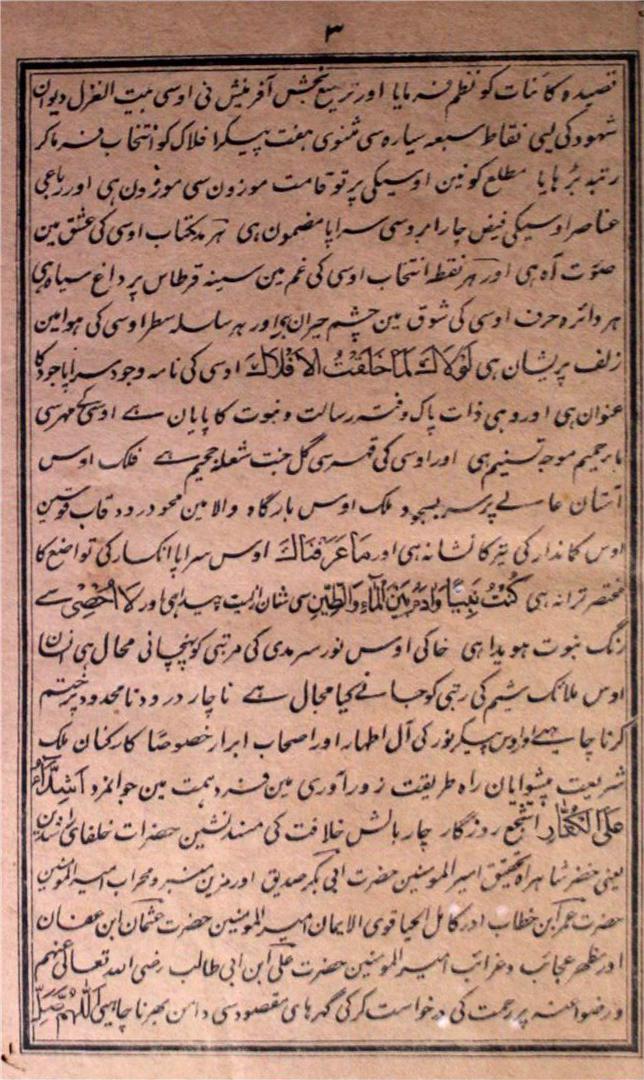 ۳
قصیدہ کائنات کو نظم فرمایا اور ترصیع بخش آفرینش نی اوسی بیت الغزل دیوان
شہود کی لیی نقاط سبعہ سیارہ سی مثنوی ہفت پیکر افلاک کو انتخاب فرماکر
رتبہ بڑہایا مطلع کونین اوسیکی پرتو قامت موزون سی موزون ہی اور رباعی
عناصر اوسیکی فیض چار ابروسی سراپا مضمون ہی ہر مد کتاب اوسی کی عشق مین
صوت آہ ہی اور ہر نقطہ انتخاب اوسی کی غم مین سینہ قرطاس پر داغ سیاہ ہی
ہر دائرہ حرف اوسی کی شوق مین چشم حیران ہی اور ہر سلسلہ سطر اوسی کی ہوا مین
زلف پریشان ہی لَوْلَاكَ لَمَا خَلَقْتُ الْاَفْلَاكَ اوسی کی نامہ وجود سراپا جود کا
عنوان ہی اور وہی ذات پاک دفتر رسالت و نبوت کا پایان ہے اوسی کے مہر سی
نار جحیم موجہ تسنیم ہی اور اوسی کی قہر سی گل جنت شعلۂ جحیم ہے فلک اوس
آستان عالے پر سر بسجود ملک اوس بارگاہ والا مین محو درود قاب قوسین
اوس کماندار کی تیر کا نشانہ ہی اور مَا عَرَفْنَاكَ اوس سراپا انکسار کی تواضع کا
مختصر ترانہ ہی كُنْتُ نَبِيًّا وَاٰدَمُ بَيْنَ الْمَاءِ وَالطِّيْنِ سی شان ازلیت پیدا ہی اور لَا اُحْصِیْ سے
رنگ نبوت ہویدا ہی خاکی اوس نور سرمدی کی مرتبی کو پہچانی محال ہی انسان
اوس ملائک شیم کی رتبی کو جانے کیا مجال ہے ناچار درود نامحدود پر ختم
کرنا چاہیے اور اوس پیکر نور کی آل اطہار اور اصحاب ابرار خصوصًا کارکنان ملک
شریعت پیشوایان راہ طریقت زور آوری مین فرد ہمت مین جوانمرد اَشِدَّاءُ
عَلَی الْکُفَّارِ اشجع روزگار چار بالش خلافت کی مسند نشین حضرات خلفای راشدین
یعنی خضر شاہراہ تحقیق امیر المومنین حضرت ابی بکر صدیق اور مزین منبر و محراب امیر المومنین
حضرت عمر ابن خطاب اور کامل الحیا قوی الایمان امیر المومنین حضرت عثمان ابن عفان
اور مظہر عجائب و غرائب امیر المومنین حضرت علی ابن ابی طالب رضی اللہ تعالی عنہم
و رضوا عنہ پر رحمت کی درخواست کرکی گہرہای مقصود سی دامن بہرنا چاہیی اَللّٰهُمَّ صَلِّ